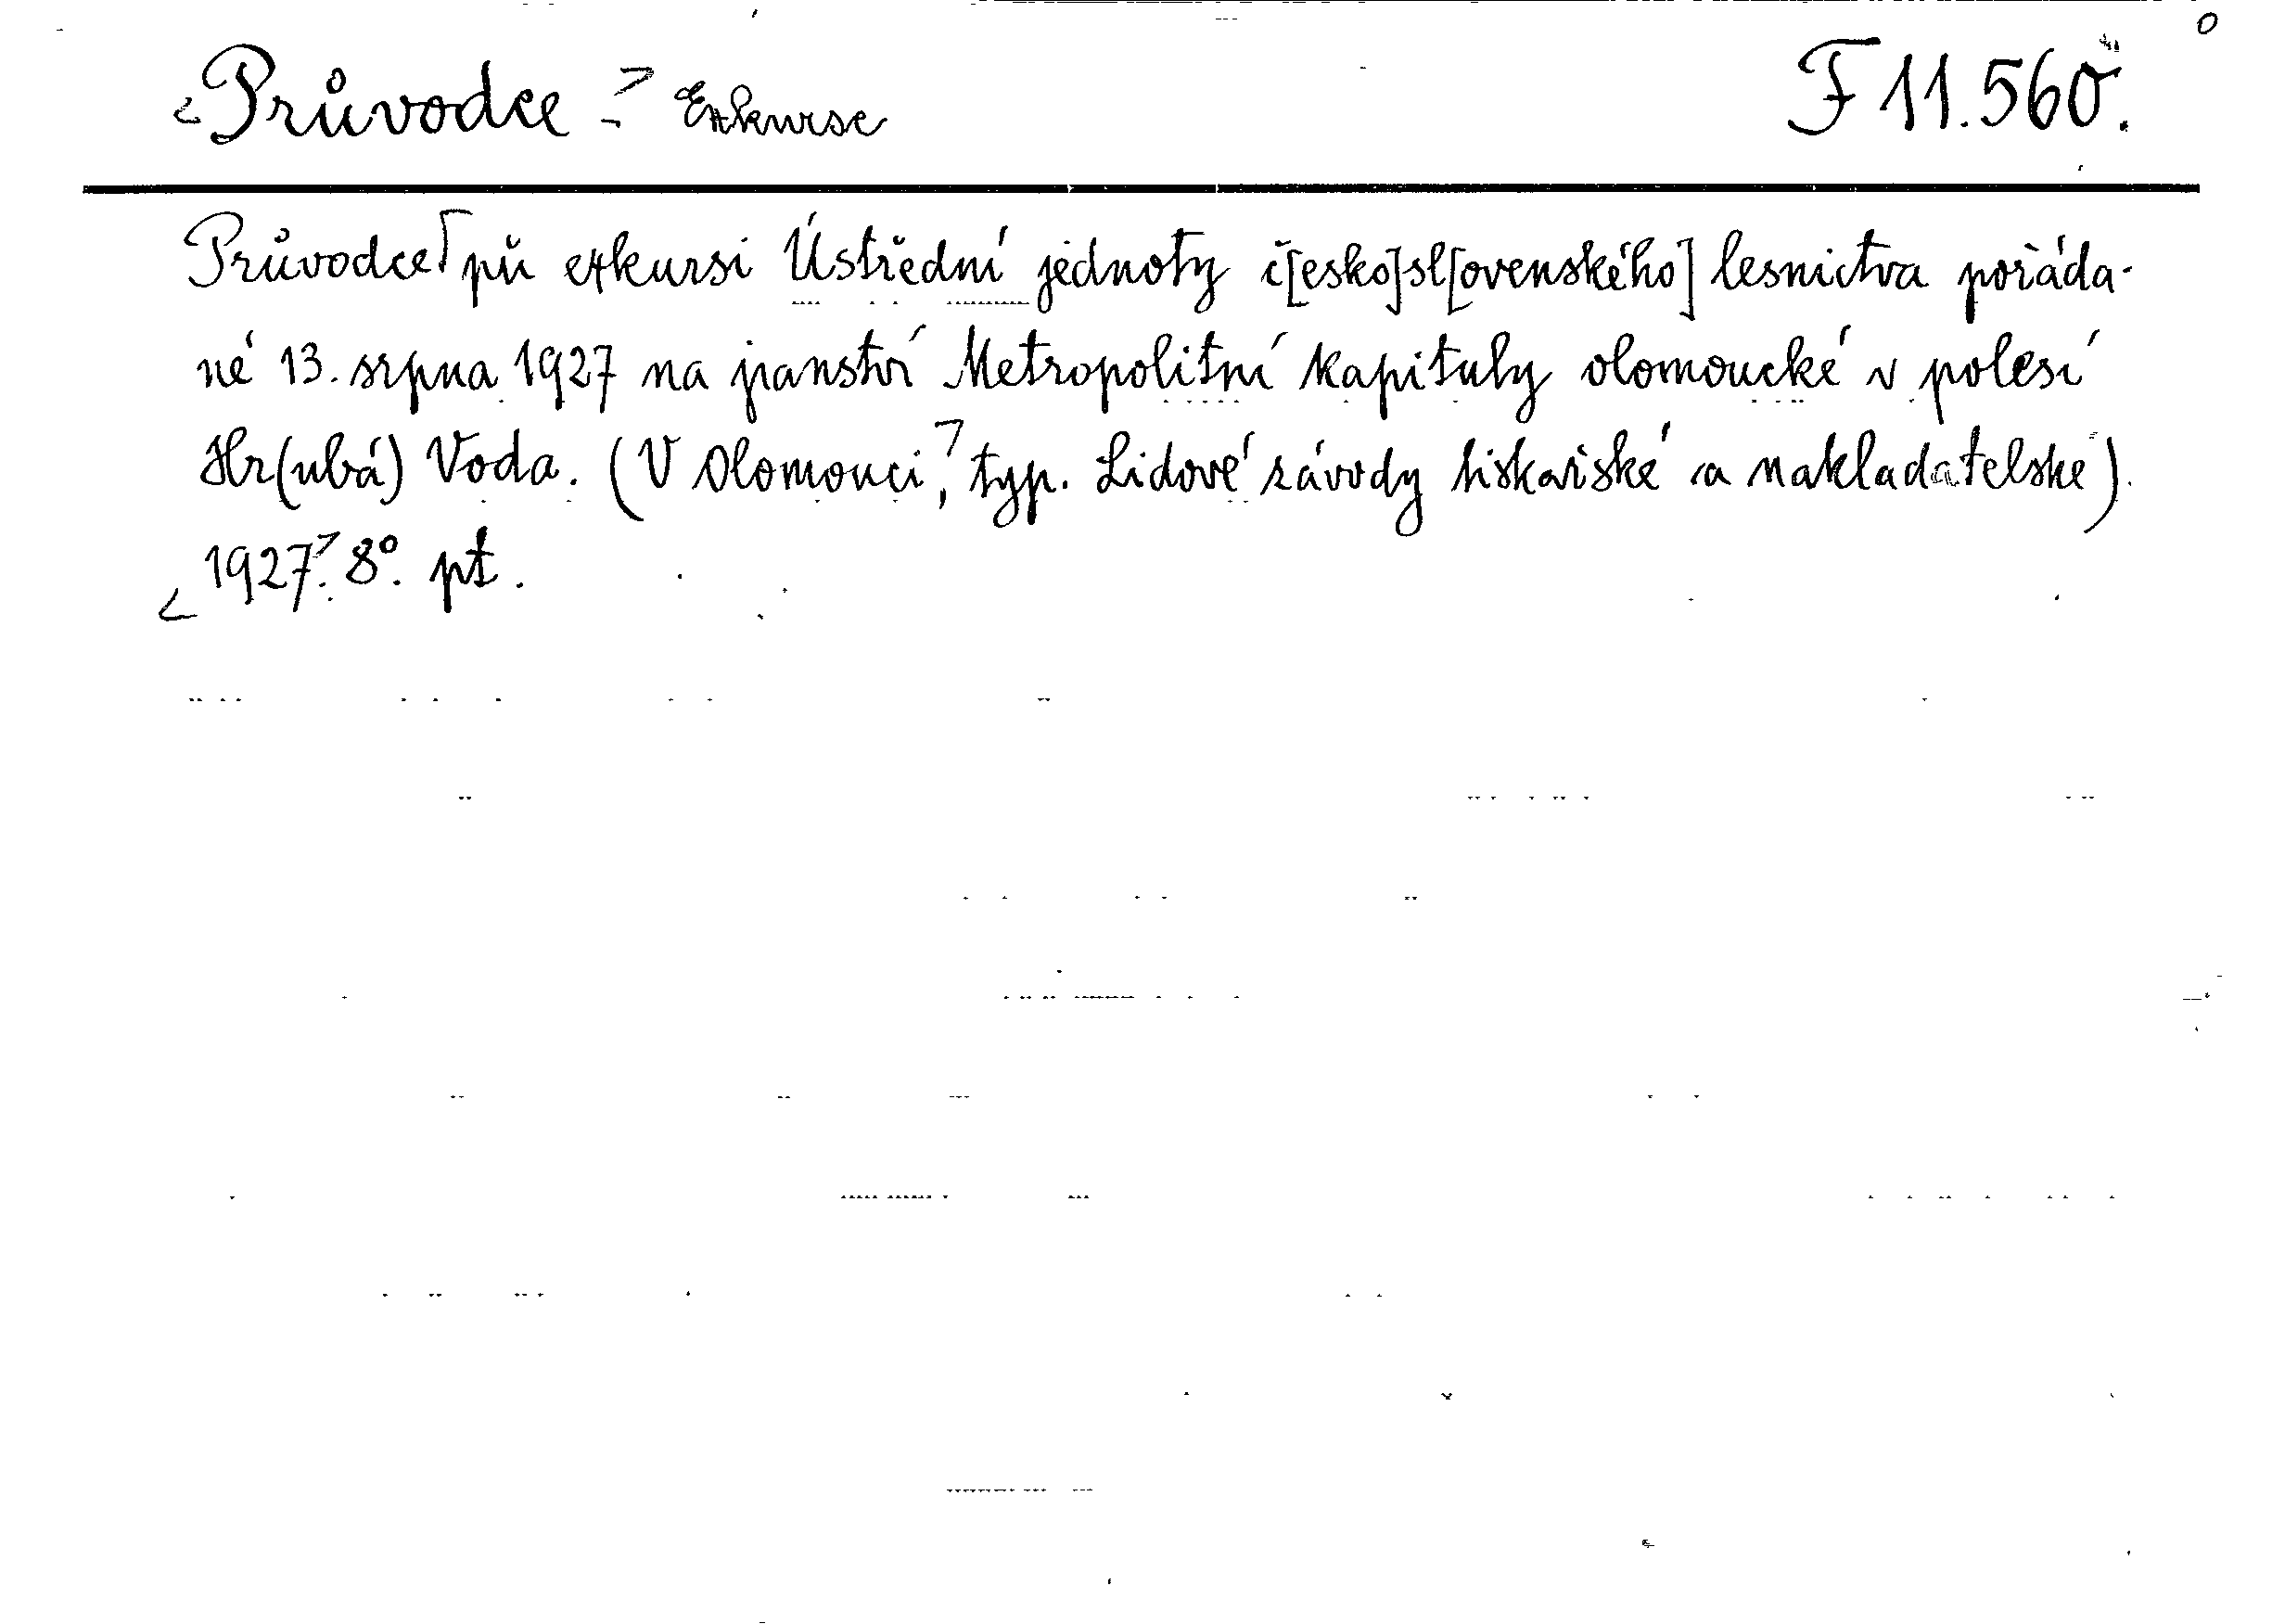 Průvodce - Exkurse F 11.560.
Průvodce při exkursi Ústřední jednoty č[esko]sl[ovenského] lesnictva pořáda-
né 13. srpna 1927 na panství Metropolitní kapituly olomoucké v polesí
Hr(ubá) Voda. (V Olomouci, typ. Lidové závody tiskařské a nakladatelské).
1927. 8°. př.